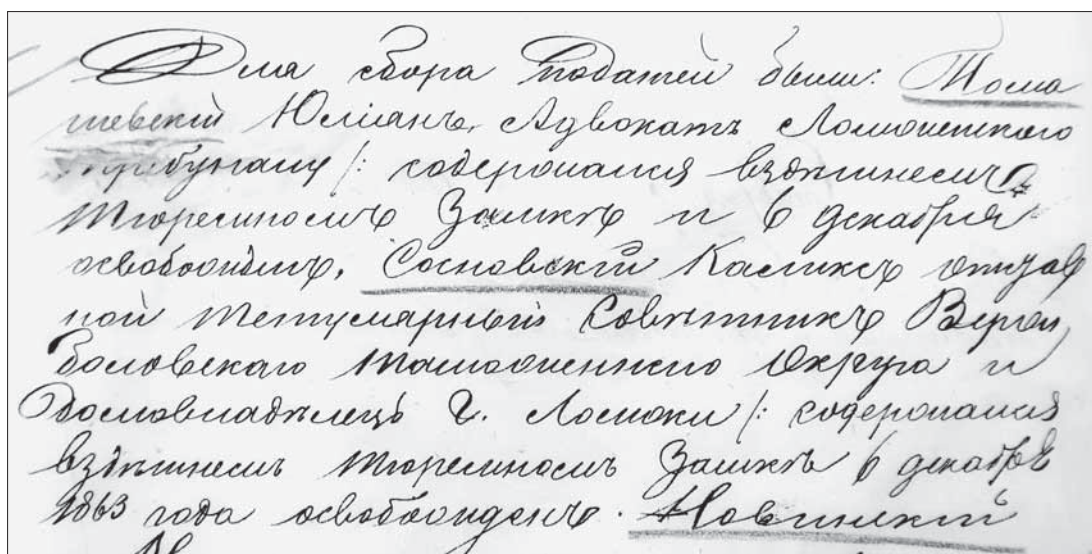 Для сбора податей были: Тома
шевскій Юліанъ, Адвокатъ Ломженского
трибунала /: содержался въ здѣшнемъ
Тюремномъ Замкѣ и 6 декабря
освобожденъ, Сосновскій Каликсъ отстав
ной Титулярный Совѣтникъ Верж
боловскаго таможеннаго Округа и
Домовладѣлецъ г. Ломжи /: содержался
въ здѣшнемъ тюремномъ Замкѣ 6 декабря
1863 года освобожденъ. Новинскій